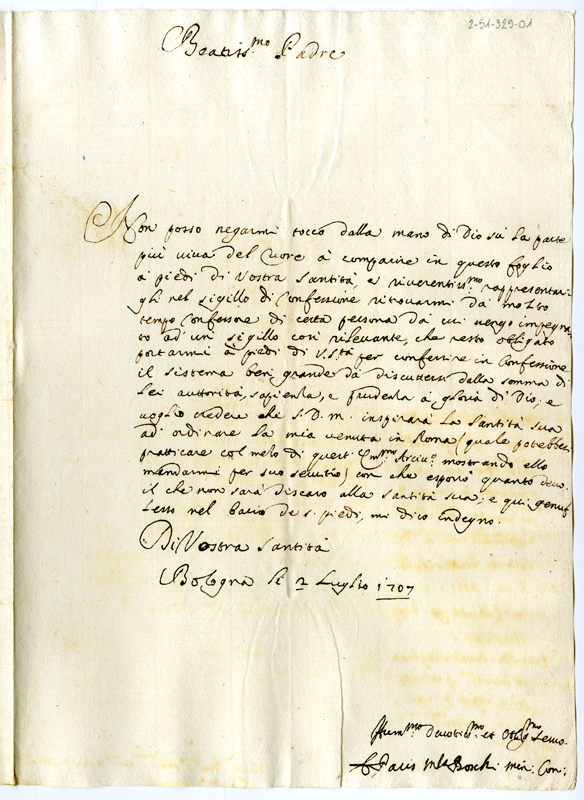 2-51-329-01
Beatiss.mo Padre
Non posso negarmi tocco dalla mano di Dio sù la parte
più viva del Cuore à comparire in questo foglio
a piedi di Vostra Santità, e riverentiss.te rappresentar
gli nel sigillo di Confessione ritrovarmi da molto
tempo Confessore di certa persona da cui vengo impegna
to ad un sigillo così rilevante, che resto obligato
portarmi à piedi di V. S.tà per conferire in Confessione
il sistema ben grande da discutersi dalla somma di
Lei auttorità, sapienza, e prudenza à gloria di Dio; e
voglio credere che S. D. M. inspirarà la Santità sua
ad ordinare la mia venuta in Roma (quale potrebbesi
pratticare col melo di quest' Em.mo Arciv.o mostrando ello
mandarmi per suo servitio) con che esporrò quanto devo
il che non sarà discaro alla Santità sua; e qui genuf
lesso nel bacio de s. piedi, mi dico indegno.
Di Vostra Santità
Bologna li 2 Luglio 1707
Hum.mo Devotiss.mo et Oblig.mo Servo
Boschi Min: Con: